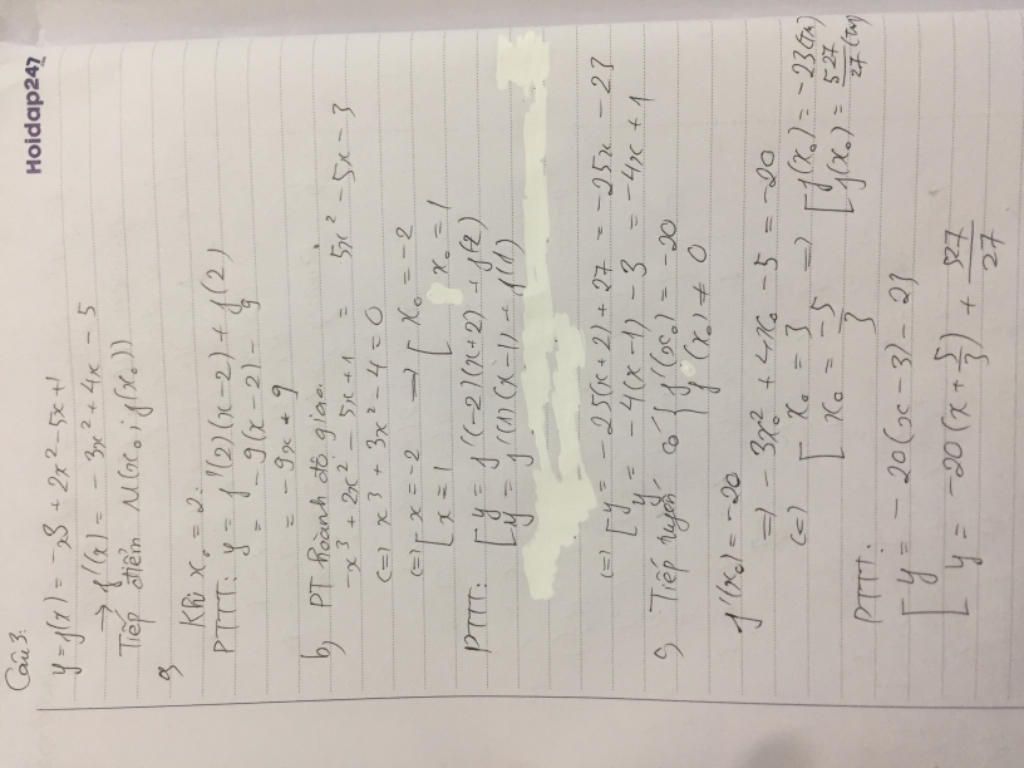 Hoidap247
Câu 3:
y = f(x) = -x³ + 2x² - 5x + 1
→ f'(x) = -3x² + 4x - 5
Tiếp điểm M(x₀; f(x₀))
a,
Khi x₀ = 2:
PTTT: y = f'(2)(x-2) + f(2)
= -9(x-2) - 9
= -9x + 9
b, PT hoành độ giao:
-x³ + 2x² - 5x + 1 = 5x² - 5x - 3
(=) x³ + 3x² - 4 = 0
(=) [ x = -2 → [ x₀ = -2
[ x = 1 [ x₀ = 1
PTTT: [ y = f'(-2)(x+2) + f(2)
[ y = f'(1)(x-1) + f(1)
(=) [ y = -25(x+2) + 27 = -25x - 23
[ y = -4(x-1) - 3 = -4x + 1
c, Tiếp tuyến có { f'(x₀) = -20
{ y(x₀) ≠ 0
f'(x₀) = -20
=) -3x₀² + 4x₀ - 5 = -20
(=) [ x₀ = 3 =) [ f(x₀) = -23 (TM)
[ x₀ = -5/3 [ f(x₀) = 527/27 (TM)
PTTT:
[ y = -20(x-3) - 23
[ y = -20(x + 5/3) + 527/27